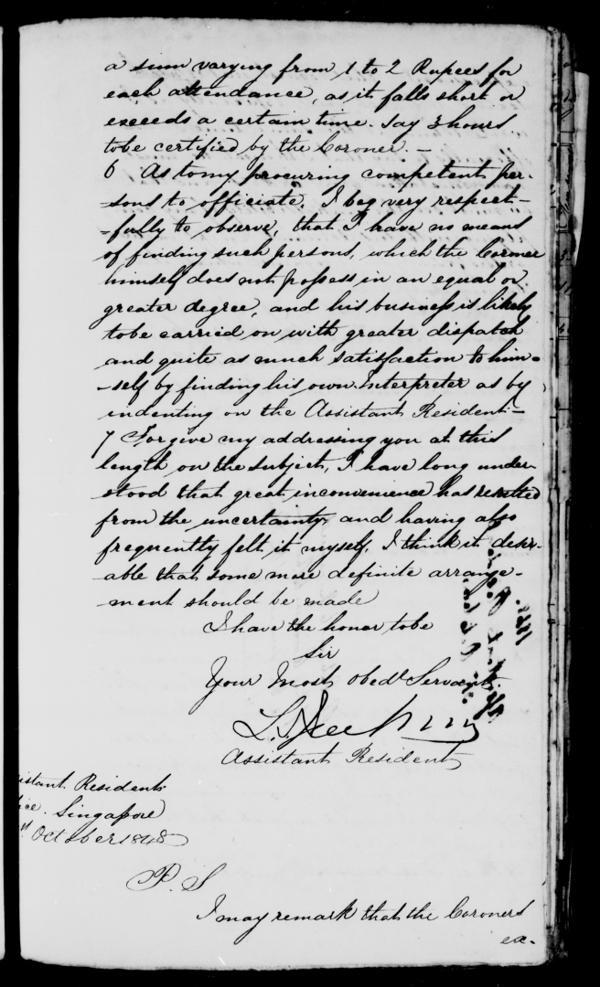 a sum varying from 1 to 2 Rupees for
each attendance, as it falls short or
exceeds a certain time. Say 3 hours
tobe certified by the Coroner. —
6 As to my procuring competent per-
-sons to officiate. I beg very respect-
-fully to observe, that I have no means
of finding such persons, which the Coroner
himself does not possess in an equal or
greater degree, and his business is likely
tobe carried on with greater dispatch
and quite as much satisfaction to him-
-self by finding his own Interpreter as by
indenting on the Assistant Resident —
7 Forgive my addressing you at this
length on the subject, I have long under-
stood that great inconvenience has resulted
from the uncertainty, and having also
frequently felt it myself, I think it desir-
-able that some more definite arrange-
-ment should be made
I have the honor tobe
Sir
Your Most Obedt. Servant.
Assistant Resident
istant Resident
ice. Singapore
October 1848
P. S
I may remark that the Coroners
ex-